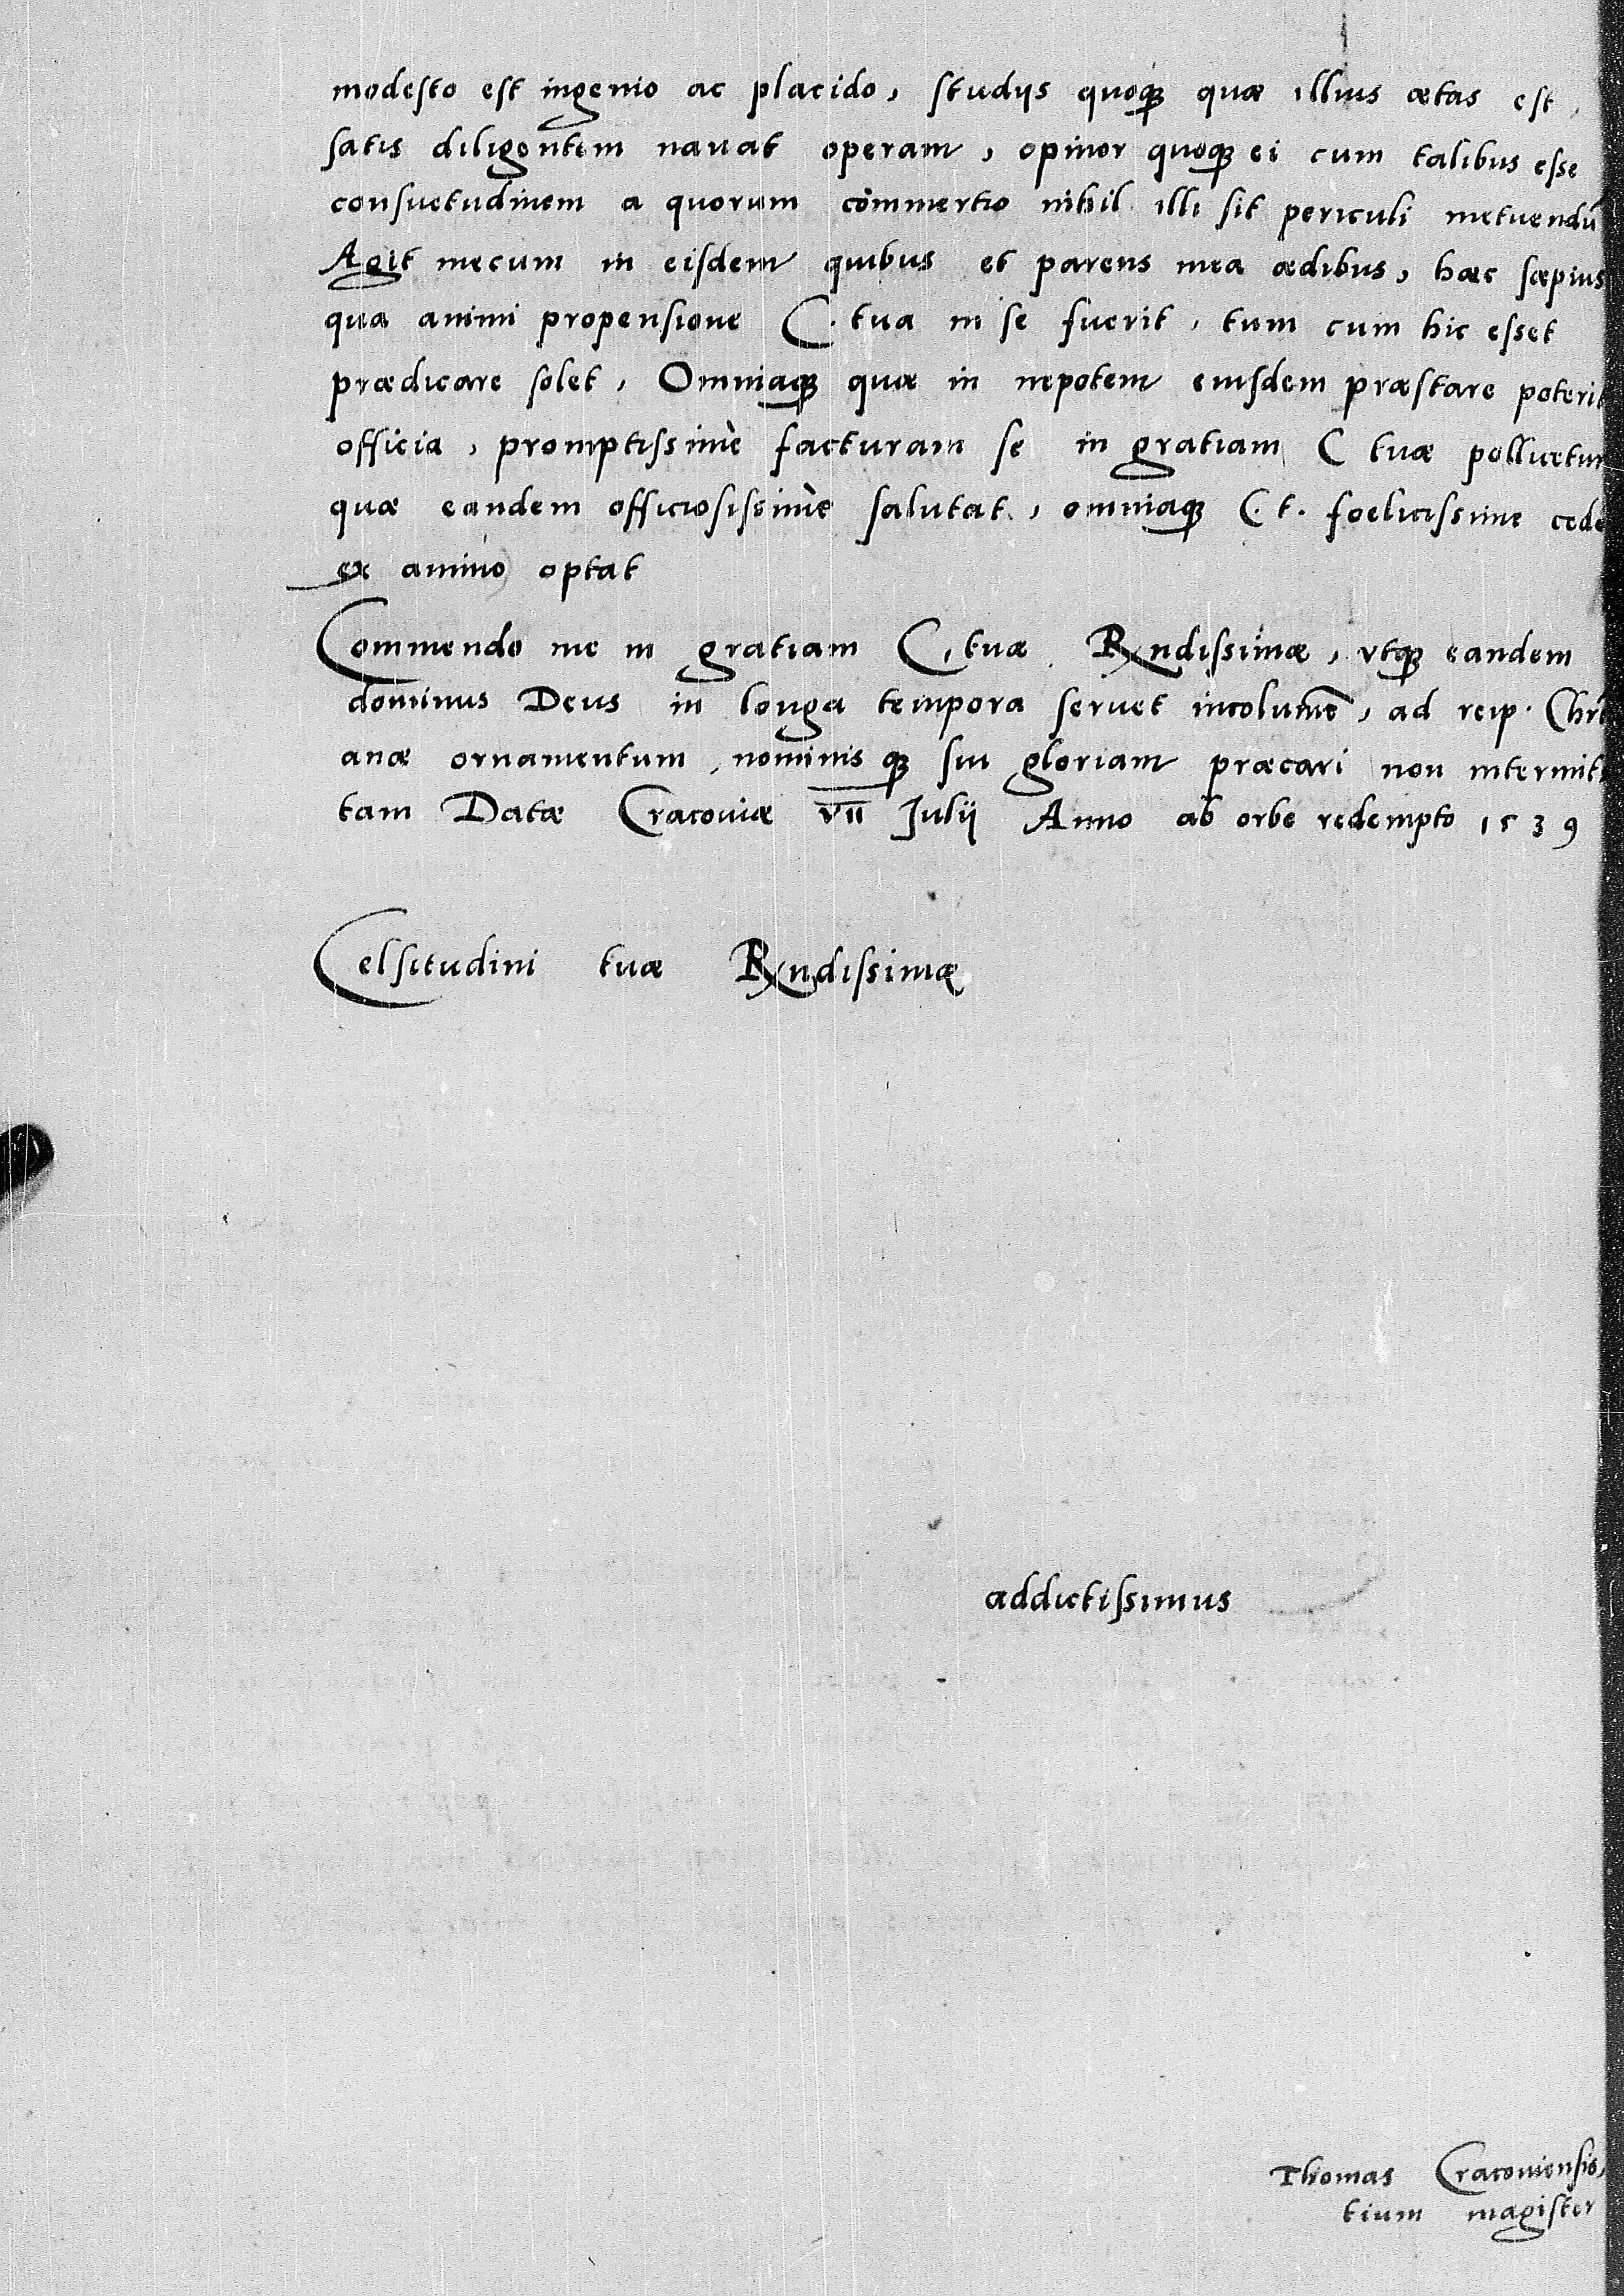 modesto est ingenio ac placido, studijs quoq; quæ illius ætas est,
satis diligentem nauat operam, opinor quoq; ei cum talibus esse
consuetudinem a quorum cõmmertio nihil illi sit periculi metuendũ
Agit mecum in eisdem quibus et parens mea ædibus, hæc sæpius
qua animi propensione C. tua in se fuerit, tum cum hic esset
prædicare solet, Omniaq; quæ in nepotem eiusdem præstare poterit
officia, promptissimè facturam se in gratiam C tuæ pollicetur
quæ eandem officiosissimè salutat, omniaq; C. t. foelicissime cede
ex amino optat
Commendo me in gratiam C, tuæ Rndissimæ, vtq; eandem
dominus Deus in longa tempora seruet incolumẽ, ad reip. Chri
anæ ornamentum, nominis q; sui gloriam præcari non intermit
tam Datæ Cracouiæ VII Julij Anno ab orbe redempto 1539
Celsitudini tuæ Rndissimæ
addictissimus
Thomas Cracouiensis,
tium magister